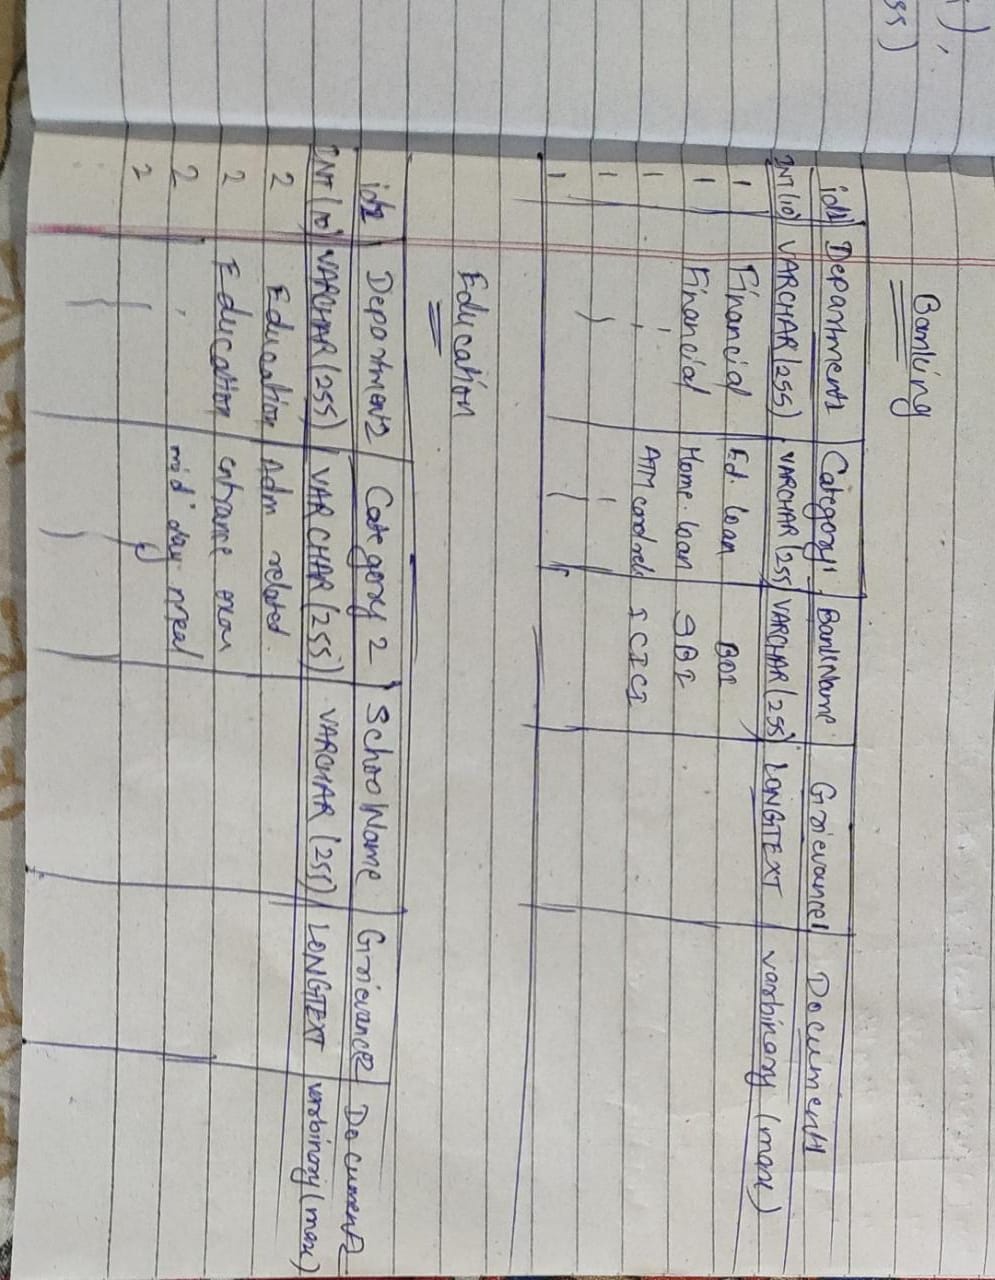 ),
55)
Banking
id1 Department1 Category1 BankName Grievance1 Document1
INT(10) VARCHAR(255) VARCHAR(255 VARCHAR(255) LONGTEXT varbinary (max)
1 Financial Ed. loan BOI
1 Financial Home. loan SBI
1 ATM card rel ICICI
1
1
Education
id2 Department2 Category 2 SchoolName Grievance2 Document2
INT(10) VARCHAR(255) VARCHAR(255) VARCHAR (255) LONGTEXT varbinary(max)
2 Education Adm related.
2 Education entrance exam
2 mid day meal
2